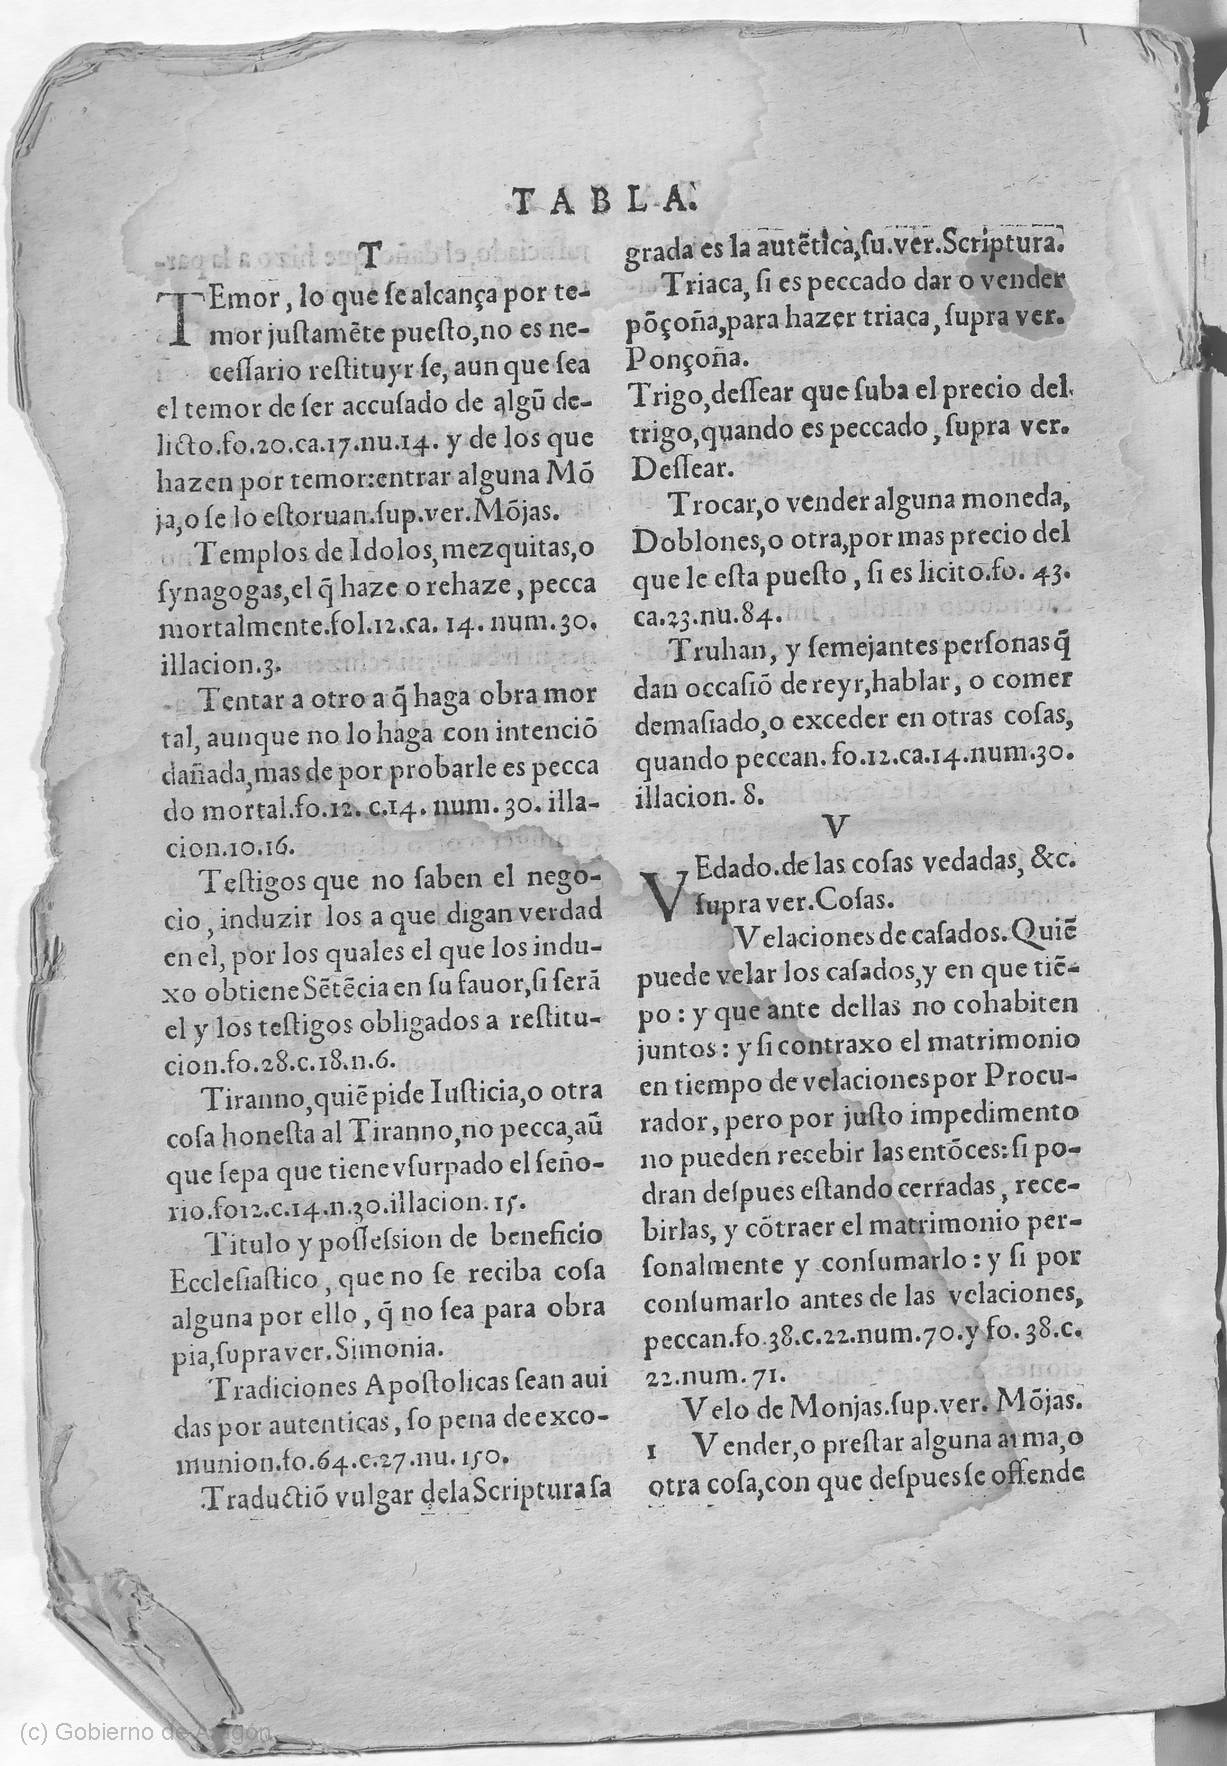 TABLA.
T
TEmor, lo que ſe alcança por te-
mor juſtamẽte pueſto, no es ne-
ceſſario reſtituyr ſe, aunque ſea
el temor de ſer accuſado de algũ de-
licto.fo.20.ca.17.nu.14. y de los que
hazen por temor:entrar alguna Mõ
ja,o ſe lo eſtoruan.ſup.ver.Mõjas.
Templos de Idolos, mezquitas,o
ſynagogas,el q̃ haze o rehaze, pecca
mortalmente.fol.12.ca.14.num.30.
illacion.3.
Tentar a otro a q̃ haga obra mor
tal, aunque no lo haga con intenciõ
dañada,mas de por probarle es pecca
do mortal.fo.12. c.14. num.30. illa-
cion.10.16.
Teſtigos que no ſaben el nego-
cio, induzir los a que digan verdad
en el, por los quales el que los indu-
xo obtiene Sẽtẽcia en ſu fauor,ſi ſerã
el y los teſtigos obligados a reſtitu-
cion.fo.28.c.18.n.6.
Tiranno,quiẽ pide Iuſticia,o otra
coſa honeſta al Tiranno,no pecca,aũ
que ſepa que tiene vſurpado el ſeño-
rio.fo12.c.14.n.30.illacion.15.
Titulo y poſſeſsion de beneficio
Eccleſiaſtico, que no ſe reciba coſa
alguna por ello, q̃ no ſea para obra
pia,ſupra ver.Simonia.
Tradiciones Apoſtolicas ſean aui
das por autenticas, ſo pena de exco-
munion.fo.64.c.27.nu.150.
Traductiõ vulgar dela Scriptura ſa
grada es la autẽtica,ſu.ver.Scriptura.
Triaca, ſi es peccado dar o vender
põçoña,para hazer triaca, ſupra ver.
Ponçoña.
Trigo,deſſear que ſuba el precio del
trigo,quando es peccado, ſupra ver.
Deſſear.
Trocar,o vender alguna moneda,
Doblones,o otra,por mas precio del
que le eſta pueſto, ſi es licito.fo. 43.
ca.23.nu.84.
Truhan, y ſemejantes perſonas q̃
dan occaſiõ de reyr,hablar, o comer
demaſiado,o exceder en otras coſas,
quando peccan. fo.12.ca.14.num.30.
illacion. 8.
V
VEdado.de las coſas vedadas, &c.
ſupra ver.Coſas.
Velaciones de caſados. Quiẽ
puede velar los caſados,y en que tiẽ-
po: y que ante dellas no cohabiten
juntos: y ſi contraxo el matrimonio
en tiempo de velaciones por Procu-
rador, pero por juſto impedimento
no pueden recebir las entõces: ſi po-
dran deſpues eſtando cerradas, rece-
birlas, y cõtraer el matrimonio per-
ſonalmente y conſumarlo: y ſi por
conſumarlo antes de las velaciones,
peccan.fo.38.c.22.num.70.y fo.38.c.
22.num.71.
Velo de Monjas.ſup.ver. Mõjas.
1 Vender,o preſtar alguna arma,o
otra coſa,con que deſpues ſe offende
(c) Gobierno de Aragón